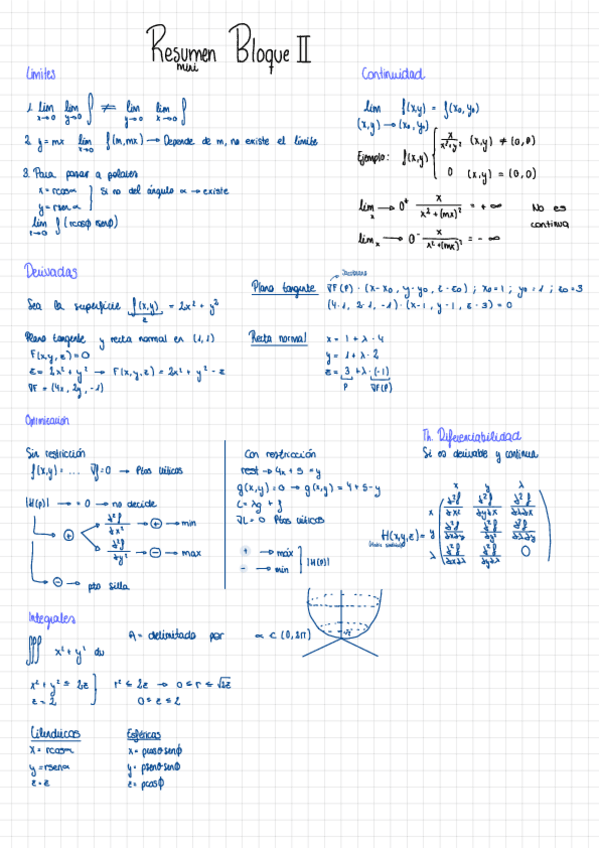 Resumen Bloque II
mini
Límites
1. lim x→0 lim y→0 f ≠ lim y→0 lim x→0 f
2. y=mx lim x→0 f(m,mx) → Depende de m, no existe el límite
3. Para pasar a polares
x=rcosα
y=rsenα } Si no del ángulo α → existe
lim r→0 f(rcosϕ rsenϕ)
Continuidad
lim f(x,y) = f(x0,y0)
(x,y)→(x0,y0)
Ejemplo: f(x,y) { x/(x²+y²) (x,y) ≠ (0,0)
0 (x,y) = (0,0)
lim x → 0⁺ x/(x²+(mx)²) = +∞ No es
lim x → 0⁻ x/(x²+(mx)²) = -∞ continua
Derivadas
Sea la superficie f(x,y) = 2x² + y²
z
Plano tangente y recta normal en (1,1)
F(x,y,z)=0
z = 2x² + y² → F(x,y,z) = 2x² + y² - z
∇F = (4x, 2y, -1)
Plano tangente ∇F(P) · (x-x0, y-y0, z-z0) ; x0=1 ; y0=1 ; z0=3
(4·1, 2·1, -1) · (x-1, y-1, z-3) = 0
Recta normal x = 1 + λ·4
y = 1 + λ·2
z = 3 + λ·(-1)
P ∇F(P)
Optimización
Sin restricción
f(x,y) = ... ∇f=0 → Ptos críticos
|H(P)| → = 0 → no decide
+ ∂²f/∂x² → + → min
∂²f/∂y² → - → max
- → pto silla
Con restricción
rest → 4x + 5 = y
g(x,y)=0 → g(x,y) = 4+5-y
L = λg + f
∇L = 0 Ptos críticos
+ → máx
- → min } |H(P)|
Th. Diferenciabilidad
Si es derivable y continua
x y λ
H(x,y,z) =
x ∂²f/∂x² ∂²f/∂y∂x ∂²f/∂λ∂x
y ∂²f/∂x∂y ∂²f/∂y² ∂²f/∂λ∂y
λ ∂²f/∂x∂λ ∂²f/∂y∂λ 0
Integrales
∭ x² + y² dv A = delimitado por α ∈ (0,2π)
x² + y² ≤ 2z
z = 2 } r² ≤ 2z → 0 ≤ r ≤ √2z
0 ≤ z ≤ 2
Cilíndricas
x = rcosα
y = rsenα
z = z
Esféricas
x = ρcosθ senϕ
y = ρsenθ senϕ
z = ρcosϕ